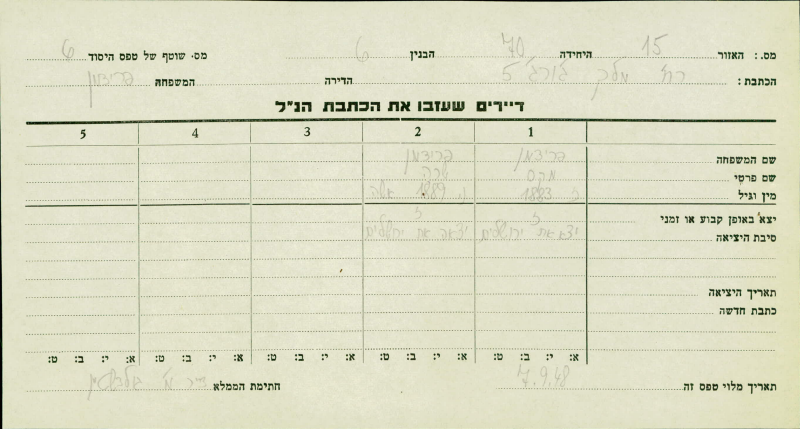 מס. : האזור 15 היחידה 70 הבנין 6 מס. שוטף של טפס היסוד 6
הכתבת : רח' מלך ג'ורג' 5 הדירה המשפחה פרידמן
דיירים שעזבו את הכתבת הנ"ל
1 2 3 4 5
שם המשפחה פרידמן פרידמן
שם פרטי מקס
מין וגיל ז 1883 נ 1889 אשה
יצא באופן קבוע או זמני
סיבת היציאה יצא את ירושלים יצאה את ירושלים
תאריך היציאה
כתבת חדשה
א: י: ב: ט: א: י: ב: ט: א: י: ב: ט: א: י: ב: ט: א: י: ב: ט:
תאריך מלוי טפס זה 7.9.48 חתימת הממלא